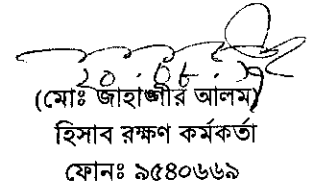 (মোঃ জাহাঙ্গীর আলম)
হিসাব রক্ষণ কর্মকর্তা
ফোনঃ ৯৫৪০৬৬৯